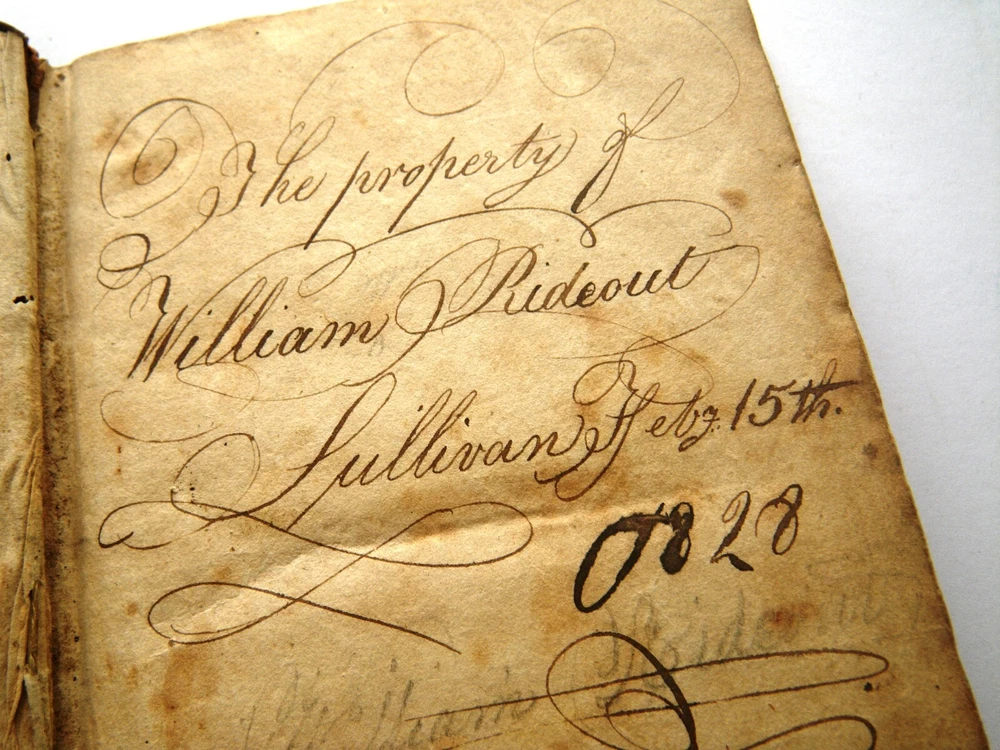 The property of
William Rideout
Sullivan Feby. 15th.
1828
William Rideout